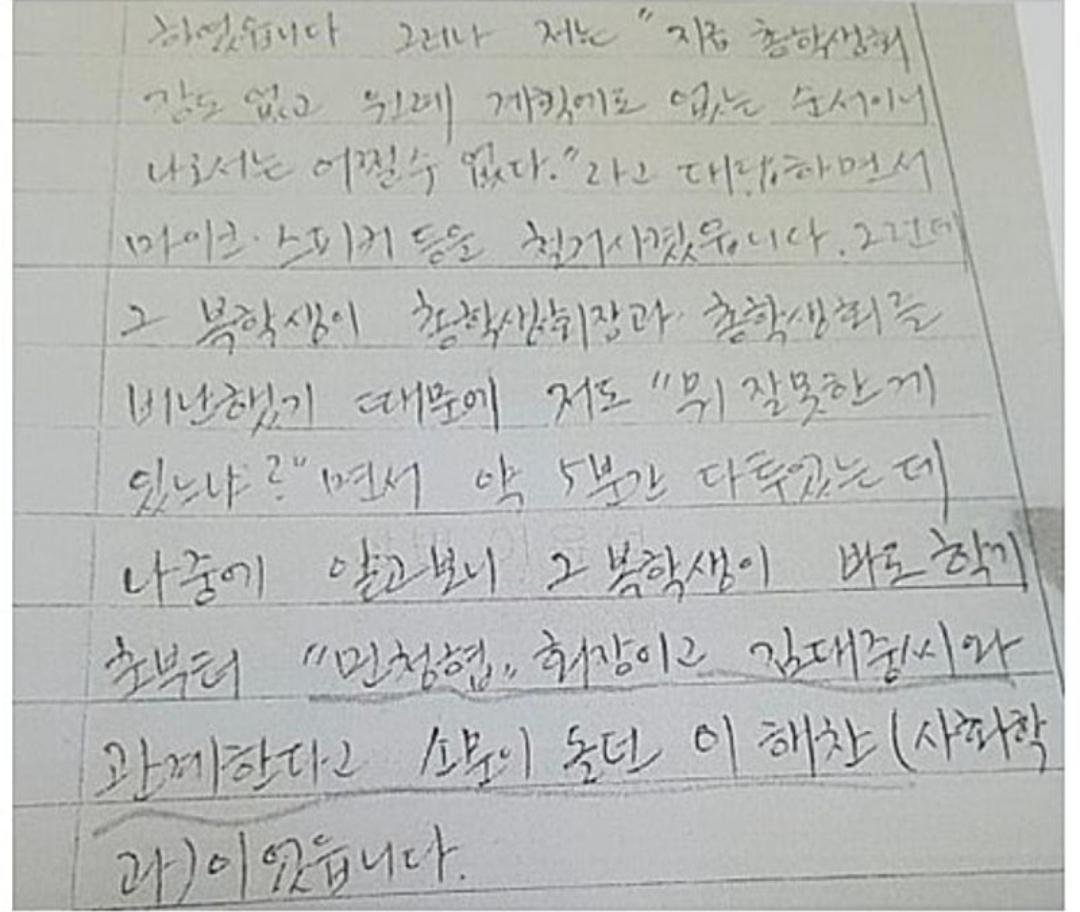 하였읍니다 그러나 저는 "지금 총학생회
장도 없고 원래 계획에도 없는 순서이니
나로서는 어쩔수 없다."라고 대답하면서
마이크·스피커 등을 철거시켰읍니다. 그런데
그 복학생이 총학생회장과 총학생회를
비난했기 때문에 저도 "뭐 잘못한게
있느냐?"면서 약 5분간 다투었는데
나중에 알고보니 그 복학생이 바로 학기
초부터 "민청협" 회장이고 김대중씨와
관계한다고 소문이 돌던 이해찬(사회학
과)이었읍니다.